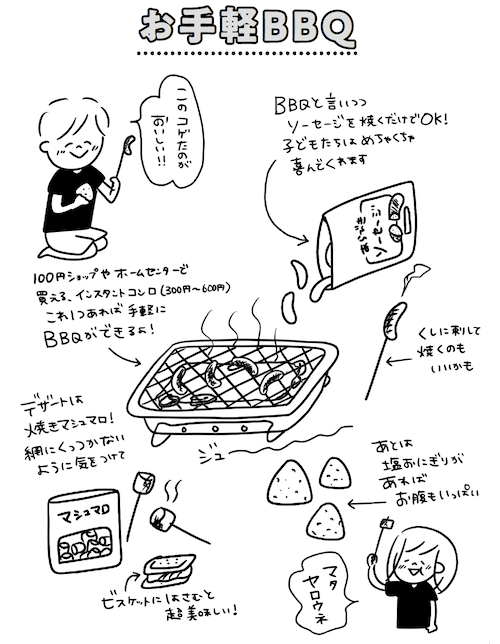 お手軽BBQ
このコゲたのが
おいしい!!
BBQと言いつつ
ソーセージを焼くだけでOK!
子どもたちはめちゃくちゃ
喜んでくれます
ソーセージ
100円ショップやホームセンターで
買える、インスタントコンロ(300円〜600円)
これ1つあれば手軽に
BBQができるよ!
くしに刺して
焼くのも
いいかも
ジュ
デザートは
焼きマシュマロ!
網にくっつかない
ように気をつけて
マシュマロ
ビスケットにはさむと
超美味しい!
あとは
塩おにぎりが
あれば
お腹もいっぱい
マタ
ヤロウネ